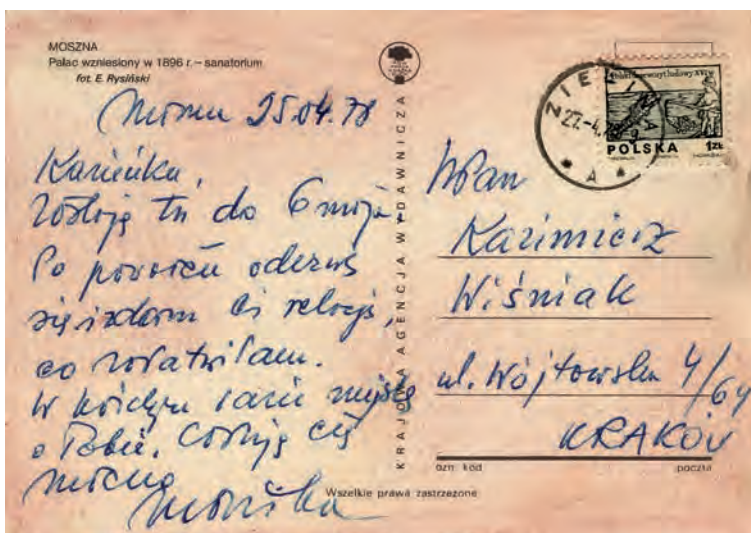 MOSZNA
Pałac wzniesiony w 1896 r. – sanatorium
fot. E. Rysiński
25.04.78
Kazieńku,
Zostaję tu do 6 maja.
Po powrocie odezwę
się i zdam Ci relację,
co załatwiłam.
W każdym razie myślę
o Tobie. Całuję Cię
mocno
KRAJOWA AGENCJA WYDAWNICZA
Wszelkie prawa zastrzeżone
POLSKA 1ZŁ
A
WPan
Kazimierz
Wiśniak
ul. Wójtowska 4/64
KRAKÓW
ozn. kod poczta